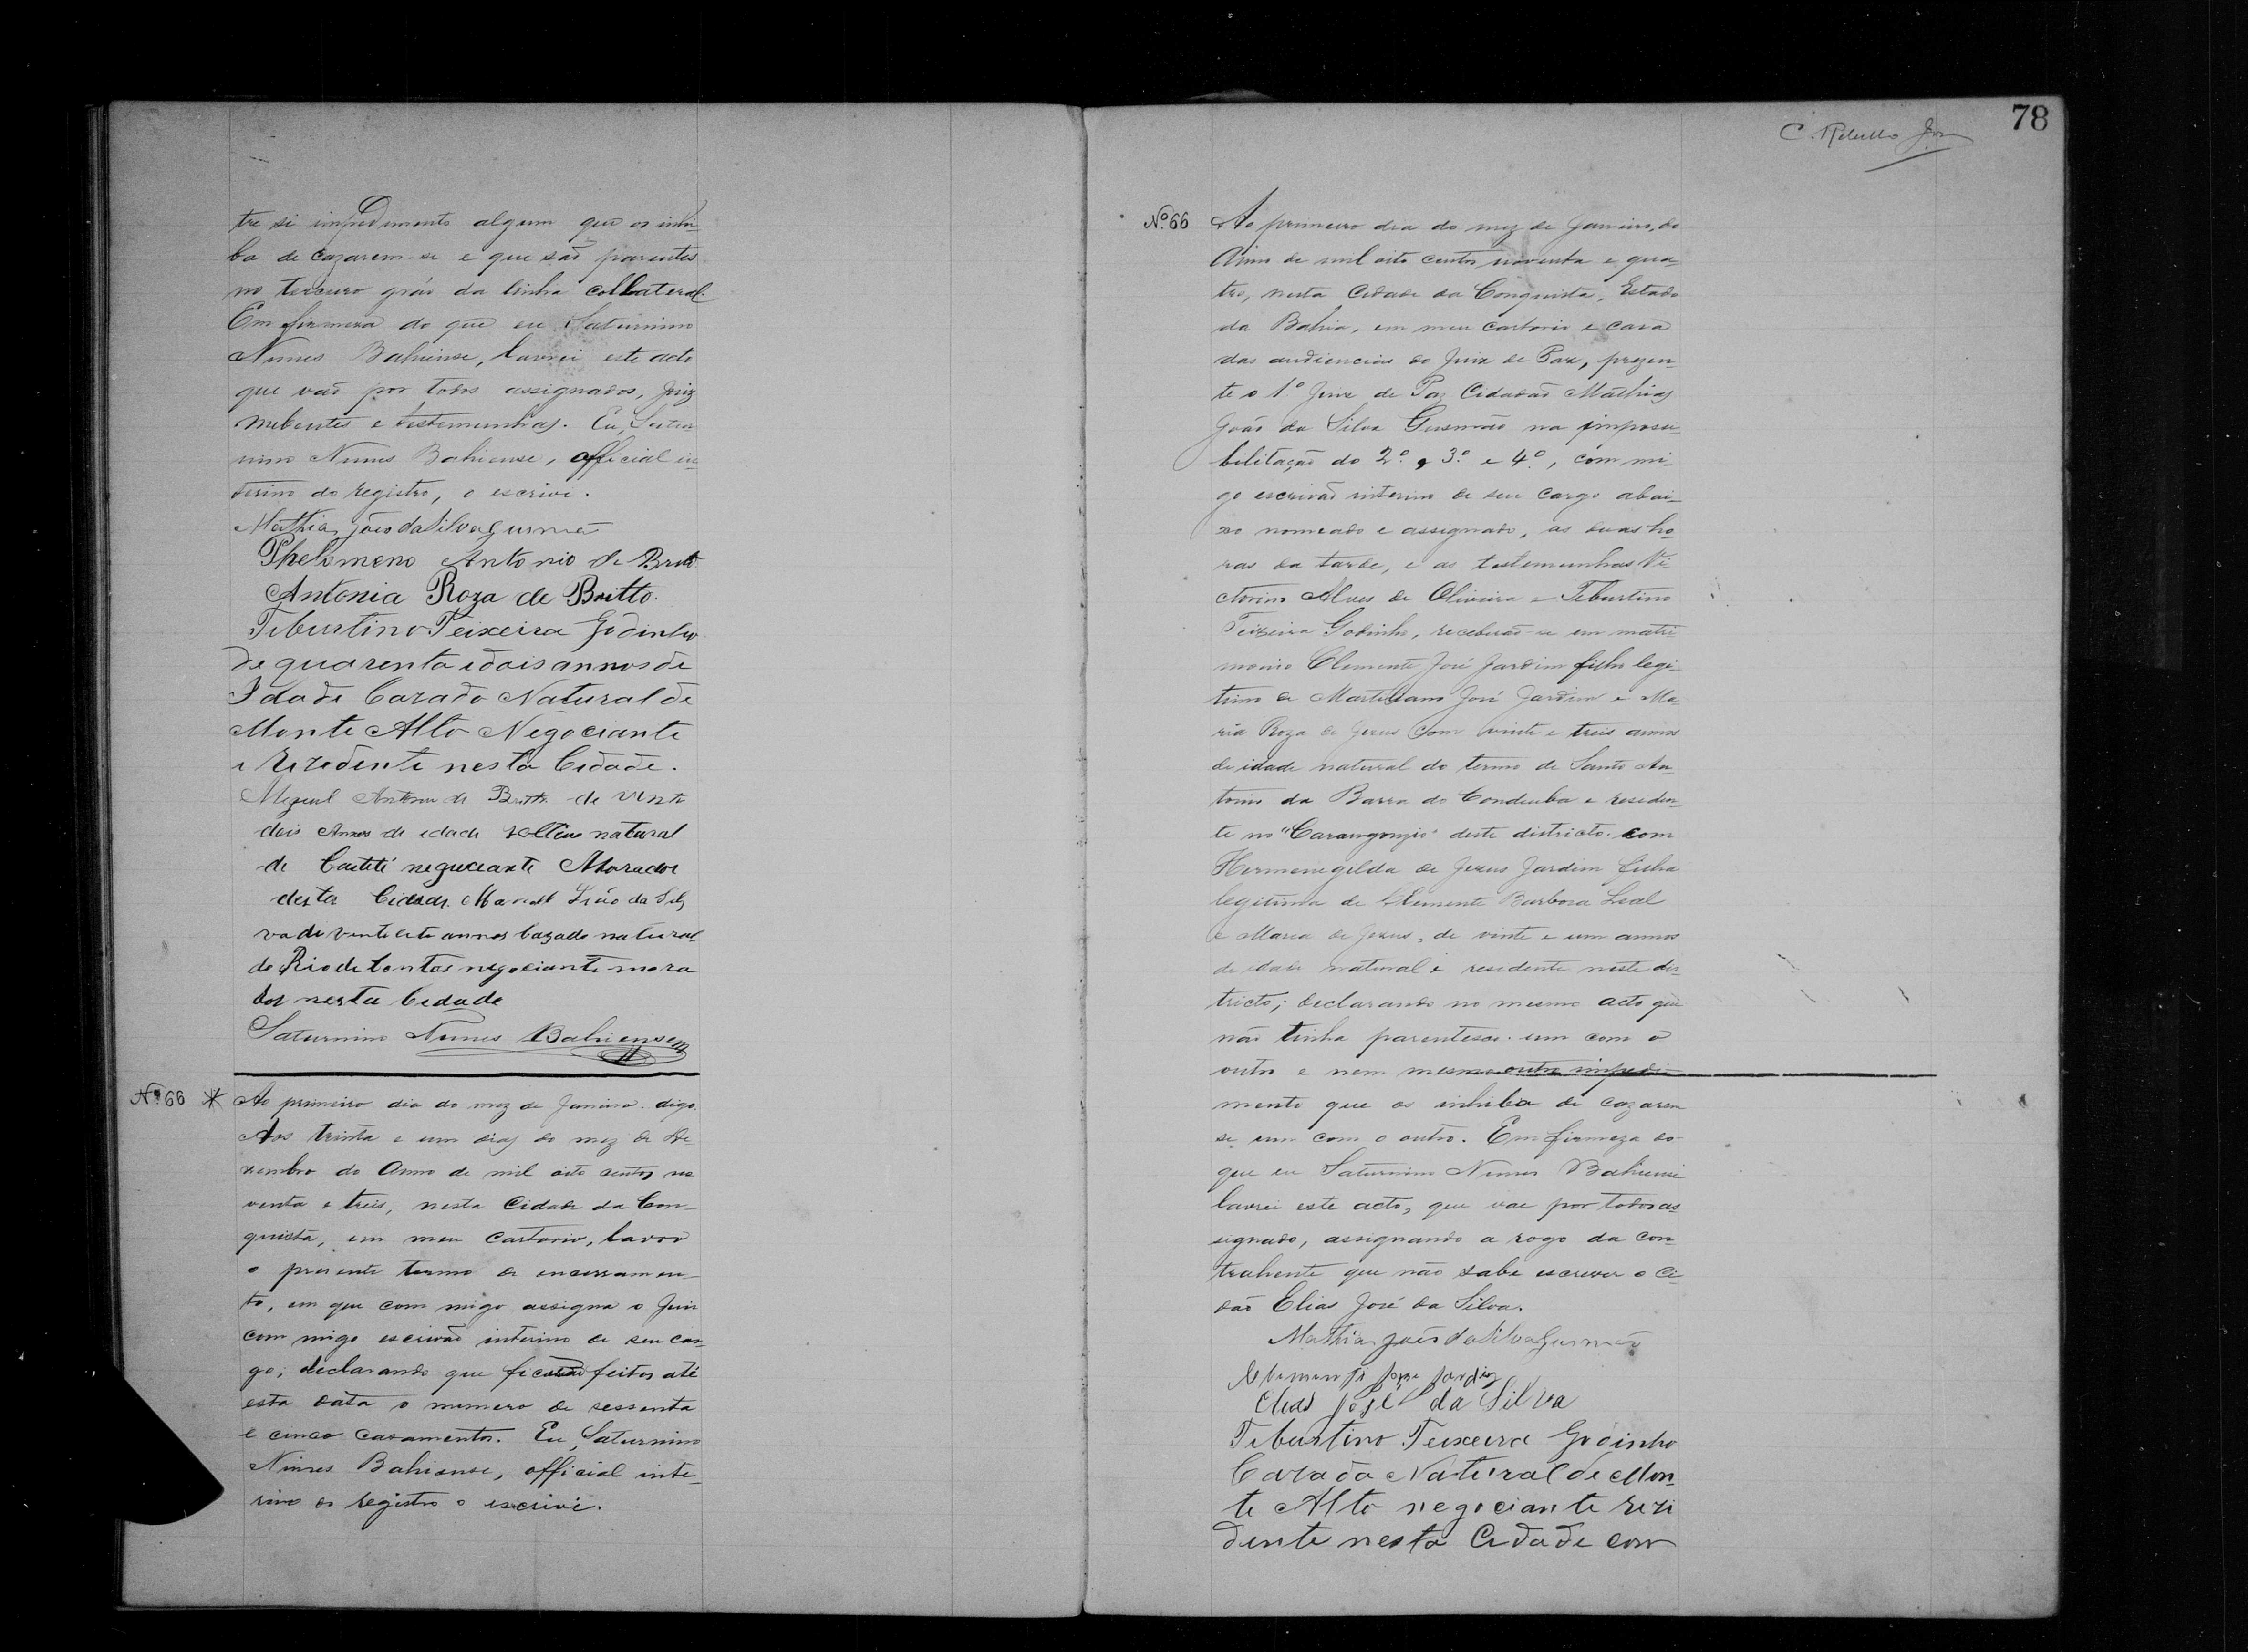 tre si impedimento algum que os inhi-
ba de cazarem-se e que são parentes
no terceiro gráo da linha collateral.
Em firmeza do que eu Saturnino
Nunes Bahiense, lavrei este acto
que vaò por todos assignados, Juiz
nubentes e testemunhas. Eu, Satur-
nino Nunes Bahiense, official in-
terino do registro, o escrivi.
Mathias João da Silva Gusmaõ
Phelomeno Antonio de Britto
Antonia Roza de Britto.
Tiburtino Teixeira Godinho
de quarenta e dois annos de
Idade Cazado Natural de
Monte Alto Negociante
e Rezedente nesta Cidade.
Miguel Antonio de Britto de vinte
dois Annos de edade solteiro natural
de Caeteté negociante Morador
desta Cidade. Manoel João da Sil
va de vinte cete annos cazado natural
do Rio de Contas negociante mora
dor nesta Cedade
Saturnino Nunes Bahiense
Nº 66 * Ao primeiro dia do mez de Janeiro digo
Aos trinta e um dias do mez de De-
zembro do Anno de mil oito centos no
venta e treis, nesta Cidade da Con-
quista, em meu Cartorio, lavro
o presente termo de encerramen-
to, em que com migo assigna o Juiz
com migo escrivão interino de seu car-
go; declarando que ficarão feitos até
esta data o numero de sessenta
e cinco casamentos. Eu, Saturnino
Nunes Bahiense, official inte-
rino do registro o escrivi.
78
C. Rebello
Nº 66 Ao primeiro dia do mez de Janeiro, do
Anno de mil oito centos noventa e qua-
tro, nesta Cidade da Conquista, Estado
da Bahia, em meu cartorio e casa
das audiencias do Juiz de Paz, prezen-
te o 1º Juiz de Paz Cidadão Mathias
João da Silva Gusmão na impossi-
bilitação do 2º, 3º e 4º, com mi-
go escrivão interino de seu cargo abai-
xo nomeado e assignado, as duas ho
ras da tarde, e as testemunhas Vi
ctorino Alves de Oliveira e Tiburtino
Teixeira Godinho, receberão-se em matri
monio Clemente José Jardim filho legi-
timo de Martiliano José Jardim e Ma
ria Roza de Jezus Com vinte e treis annos
de idade natural do termo de Santo An
tonio da Barra do Condeuba e residen-
te no deste districto. com
Hermenegilda de Jezus Jardim filha
legitima de Clemente Barboza Leal
e Maria de Jezus, de vinte e um annos
de edade natural e residente neste dis-
tricto; declarando no mesmo acto que
não tinha parentesco um com o
outro e nem mesmo outro impedi-
mento que os inhiba de cazarem
se um com o outro. Em firmeza do
que eu Saturnino Nunes Bahiense
lavrei este acto, que vae por todos as
signado, assignando a rogo da con
trahente que não sabe escrever o Ci-
dão Elias José da Silva.
Mathias João da Silva Gusmaõ
Clemente Joze Jardim
Elias José da Silva
Tiburtino Teixeira Godinho
Cazado Natural de Mon-
te Alto negociante rezi
dente nesta Cidade com